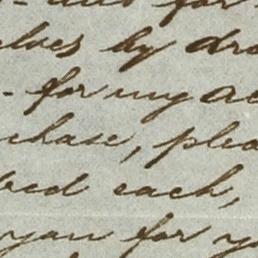 for
elves by dra
- for my ac
chase, plea
each,
you for y